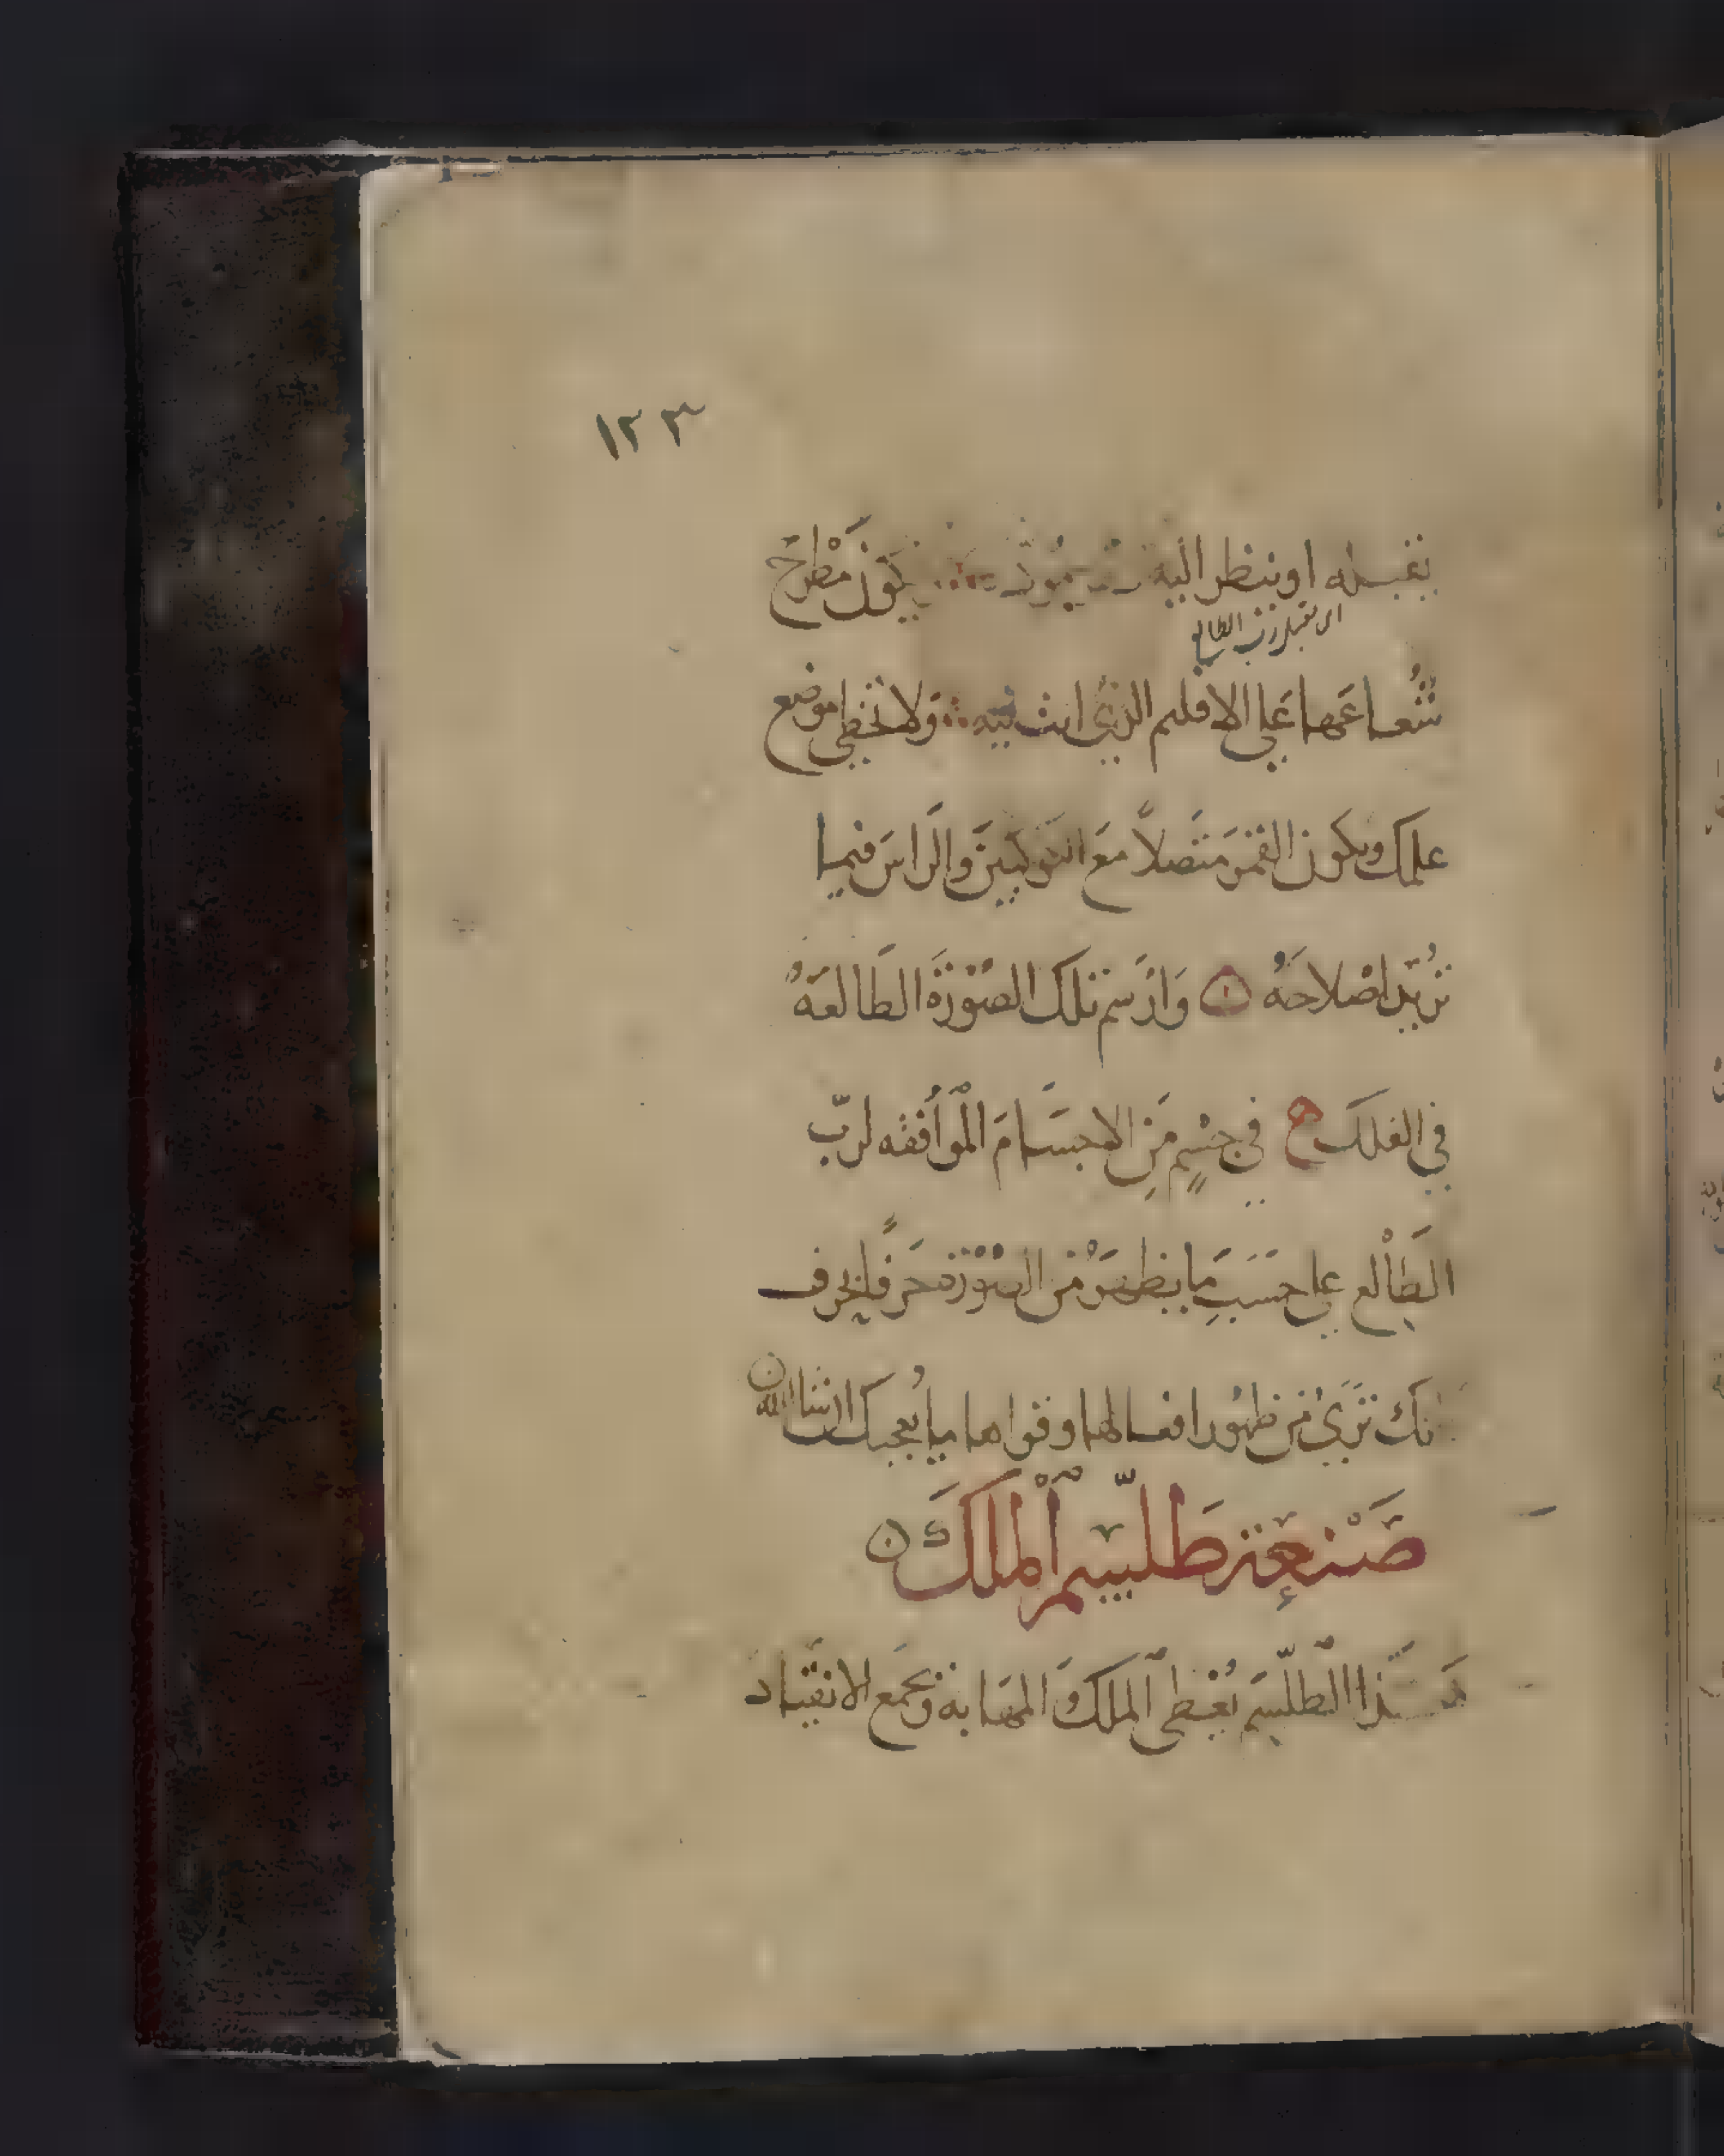 ١٢٣
يقبله او ينظر اليه يكون مطرح
اى يقبل رب الطالع
شُعاعَها عَلى الاقليم الذي انت فيه وَلا تخطى موضع
عملك ويكون القمَر متصَلاً مَع الكوكبين وَالراسَ فيما
تُريد اصْلاحَهُ وَارْسم تلكَ الصُوْرَةَ الطَالعَهُ
في الفلكَ في جسْمٍ مَنِ الاجسَامَ المْوُافقه لربّ
الطَالْع على حسَبَ مِا يظهَرْ مْن الصُوْرْة حَرفاً بحرف
انكَ تَرَىْ من ظهُور افعالها وقواها ما يُعجبكَ ان شا الله
صَنْعة طَلّسم اْلملكَ
هَذا الطلّسَم يُعْطى الملكَ المهَابة وَيجمَع الانقيَاد